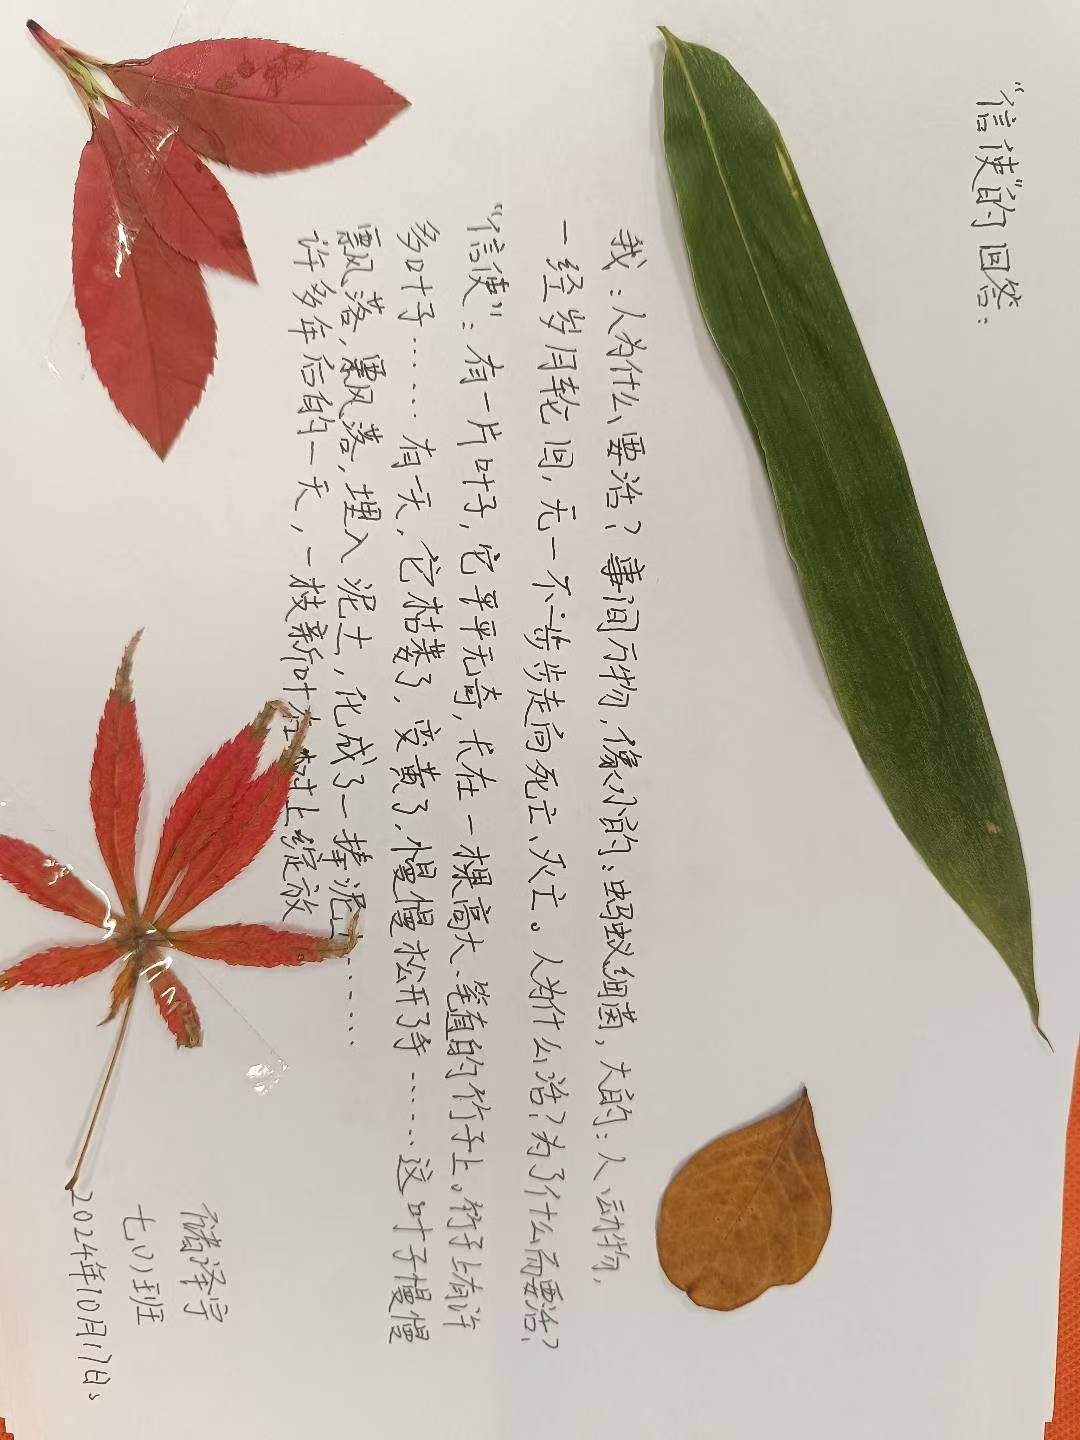 “信使”的回答：
我：人为什么要活？事间万物，像小的：蚂蚁细菌，大的：人、动物，
一经岁月轮回，无一不步步走向死亡、灭亡。人为什么活？为了什么而要活？
“信使”：有一片叶子，它平平无奇，长在一棵高大、笔直的竹子上。竹子上有许
多叶子……有一天，它枯萎了，变黄了，慢慢松开了手……这叶子慢慢
飘落，飘落，埋入泥土，化成了一捧泥土……
许多年后的一天，一枝新叶在树上绽放
褚泽宇
七(1)班
2024年10月17日。